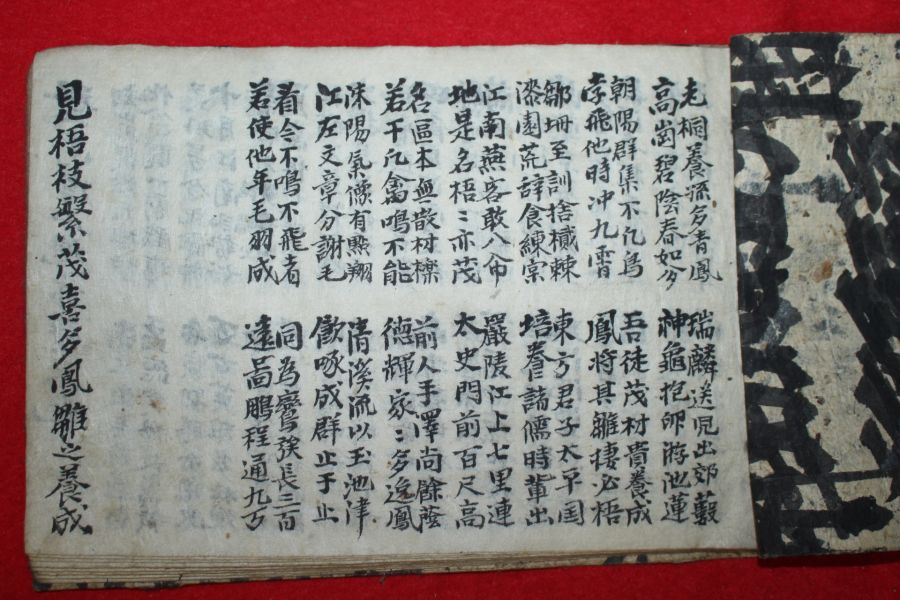 老桐養孫多青鳳
高崗碧陰春如分
朝陽群集不凡鳥
孛飛他時冲九霄
鄒珊至訓捨樲棘
漆園荒辭食練宲
江南燕客敢八命
地是名梧〻亦茂
名區本無散材櫟
若干凡禽鳴不能
洙陽氣像有㷠翔
江左文章分謝毛
看今不鳴不飛者
若使他年毛羽成
瑞麟送児出郊藪
神龜抱卵游池蓮
吾徒茂材貴養成
鳳將其雛棲必梧
東方君子太平国
培養諸儒時輩出
嚴陵江上七里連
太史門前百尺高
前人手澤尚餘蔭
德輝家〻多逸鳳
清溪流以玉池津
飲啄成群止于止
同為張長三百
遠啚鵬程通九万
見梧枝繁茂喜多鳳雛之養成